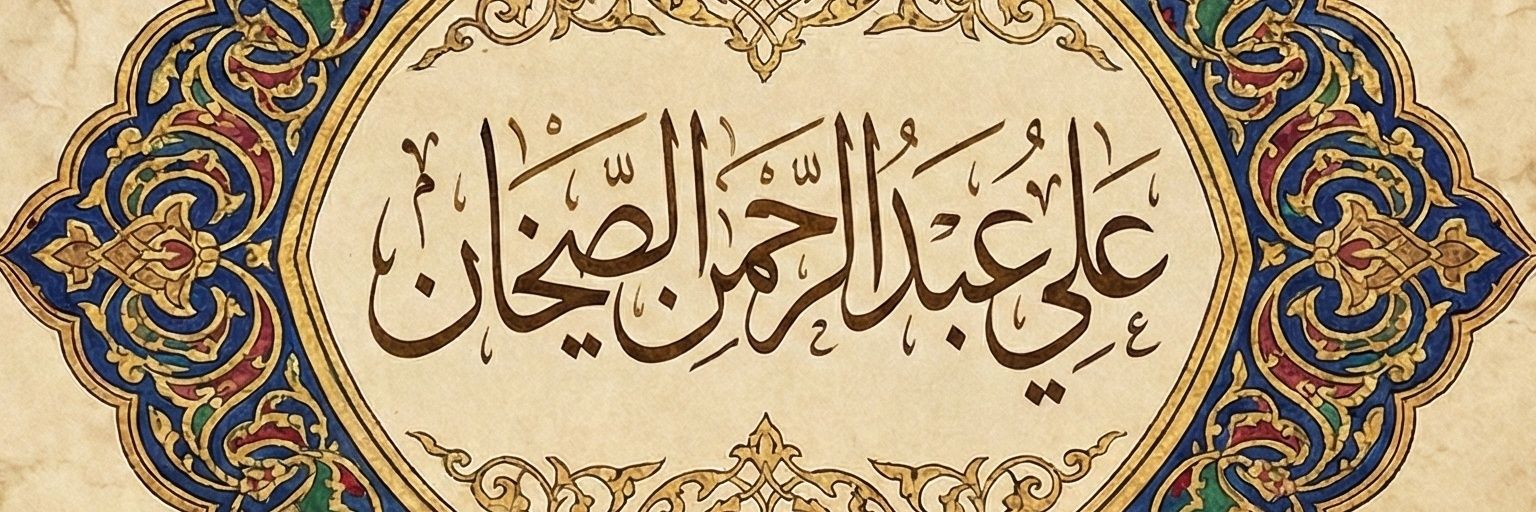 علي عبد الرحمن الصيخان